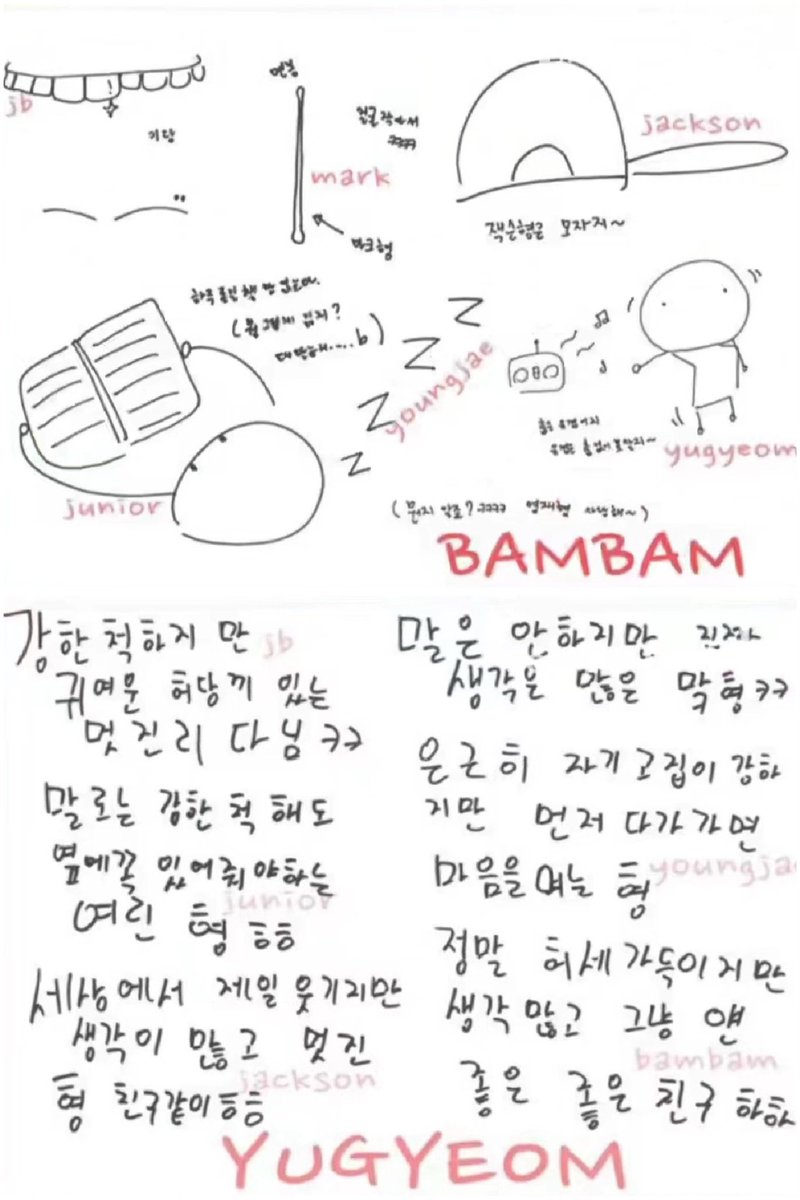 jb
면봉
얼굴 작아서
ㅋㅋㅋㅋ
jackson
mark
마크형
잭슨형은 모자지~
하루종일 책만
youngjae
Z
Z
Z
Z
junior
yugyeom
(뭔지 알죠? ㅋㅋㅋㅋ 영재형 사랑해~)
BAMBAM
강한척하지만
jb
귀여운 허당끼 있는
멋진리다님ㅋㅋ
말로는 강한척해도
옆에꼭 있어줘야하는
junior
여린 형 ㅎㅎ
세상에서 제일웃기지만
생각이 많고 멋진
jackson
형 친구같이ㅎㅎ
말은 안하지만 진짜
생각은 많은 막형ㅋㅋ
은근히 자기고집이 강하
지만 먼저다가가면
마음을여는 형
youngja
정말 허세가득이지만
생각많고 그냥 얜
bambam
좋은 좋은친구 하하
YUGYEOM